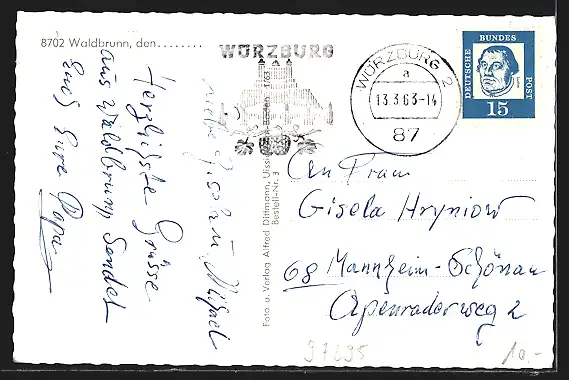 8702 Waldbrunn, den........
Herzlichste Grüsse
aus Waldbrunn sendet
Euch Eure Papa
Gisela u. Michael
Foto u. Verlag Alfred Dittmann,
Bestell-Nr. 3
WÜRZBURG
WÜRZBURG 2
a
13.3.63-14
87
DEUTSCHE
BUNDES
POST
15
An Frau
Gisela Hryniow
68 Mannheim-Schönau
Apenraderweg 2
97295
10,-